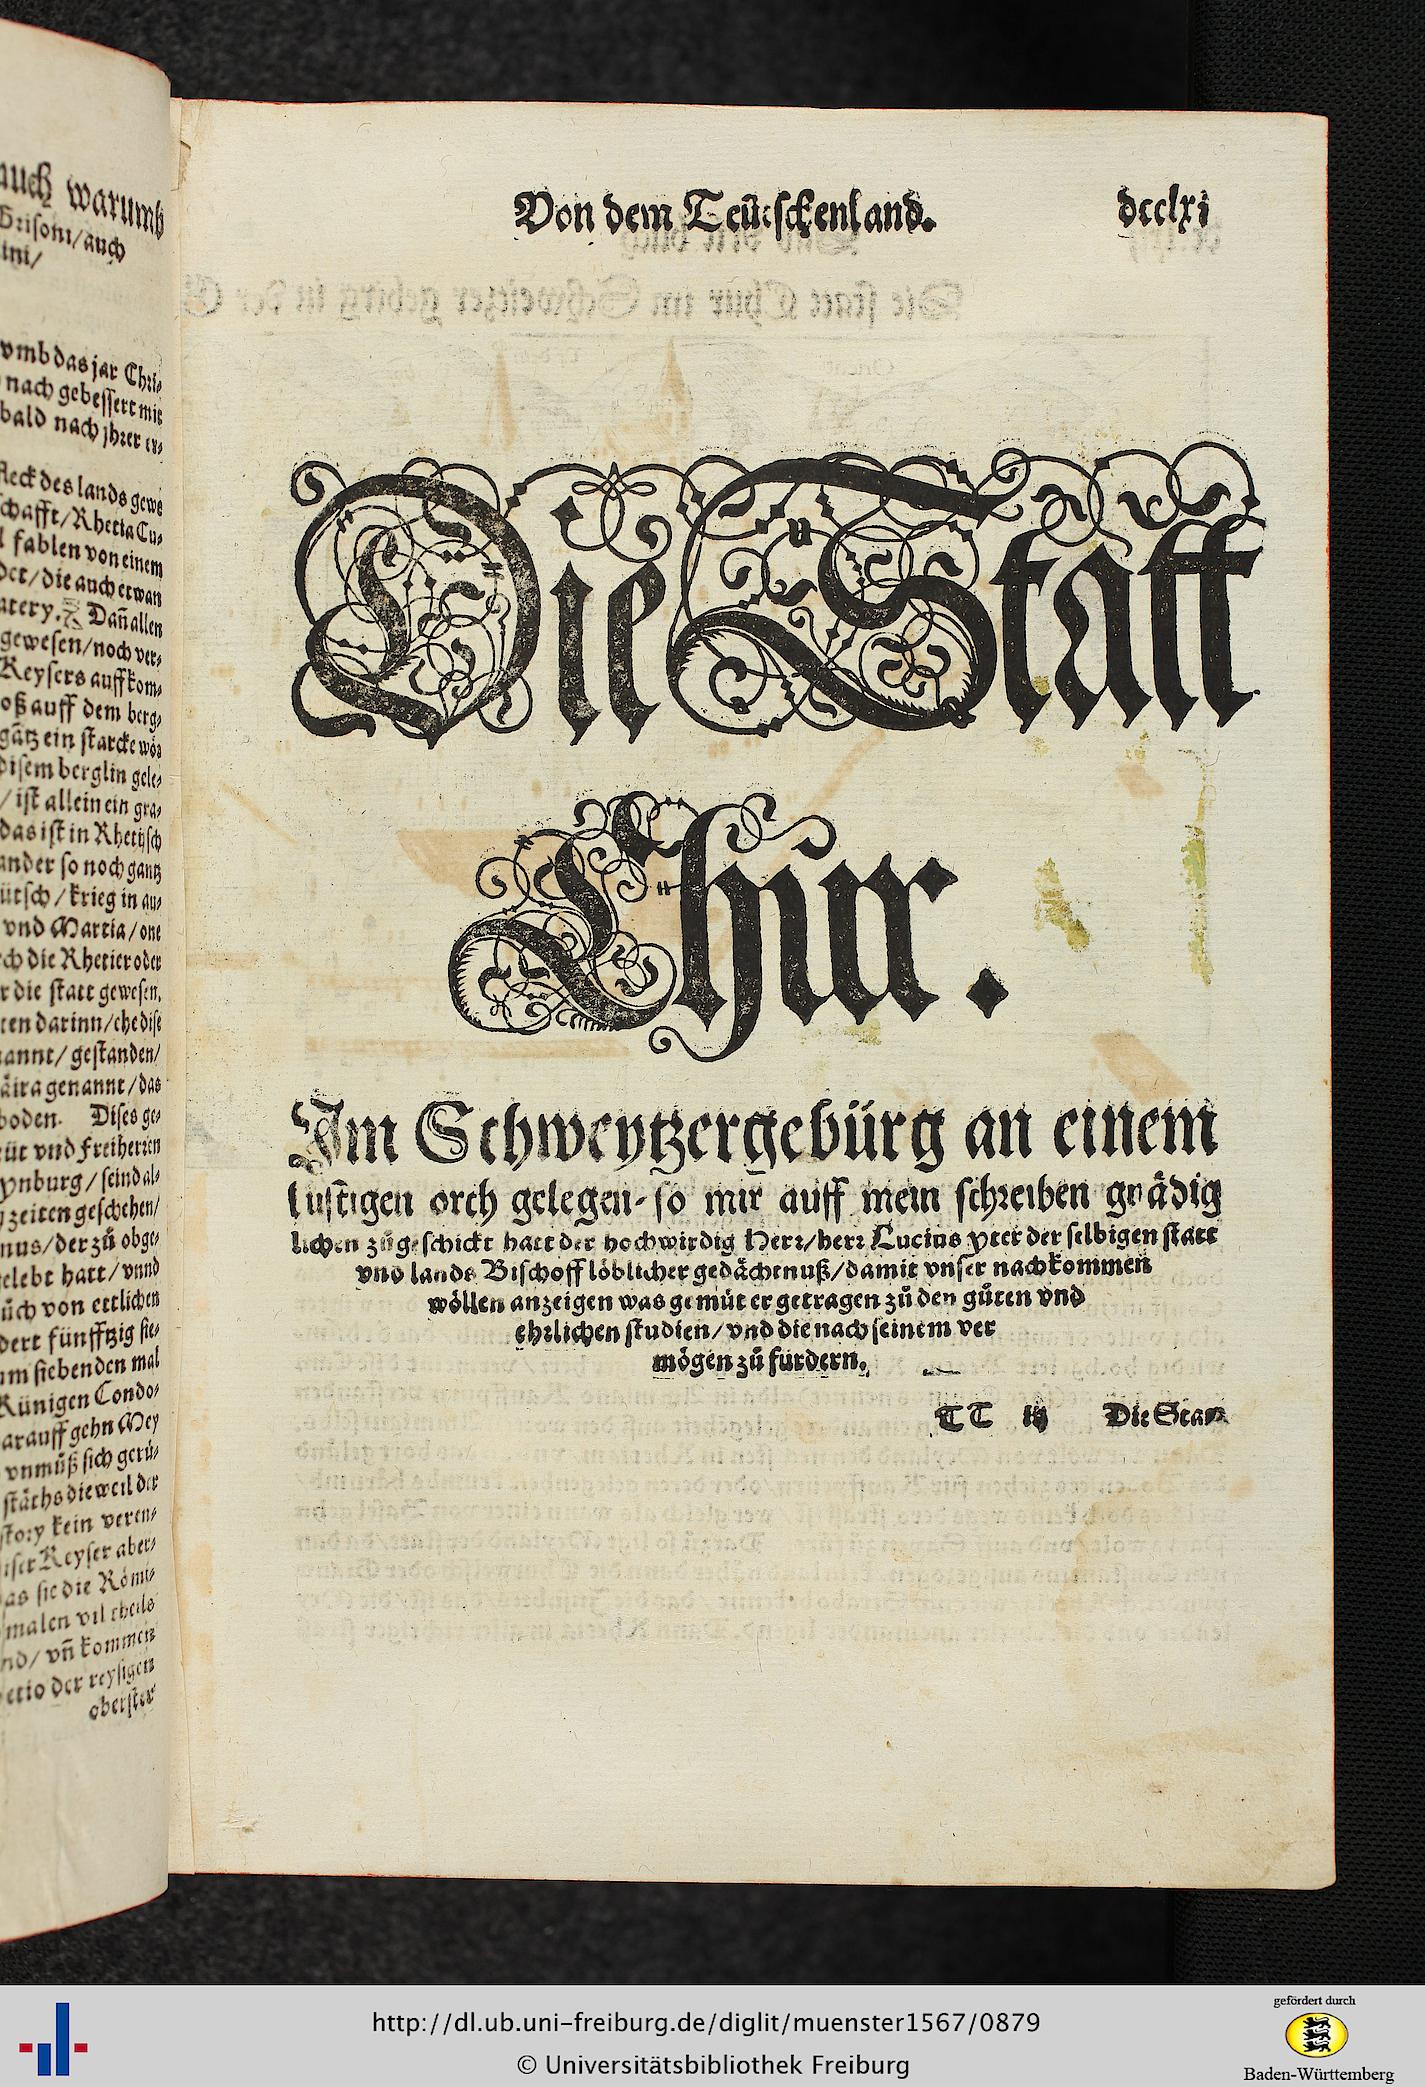 auch warumb
Grisoni/auch
ini/
vmb das jar Chri-
nach gebessert mit
bald nach jhrer er-
fleck des lands gewe
schafft/Rhetia Cu-
fablen von einem
der/die auch etwan
Dañ allen
gewesen/noch ver-
Keysers auffkom-
oß auff dem berg-
gätz ein starcke wör
disem berglin gele-
/ist allein ein gra-
das ist in Rhetijsch
ander so noch gantz
ütsch/krieg in au-
vnd Martia/one
ch die Rhetier oder
r die statt gewesen,
ten darinn/ehe dise
annt/gestanden/
genannt/das
boden. Dises ge-
üt vnd Freiherren
ynburg/seind al-
zeiten geschehen/
nus/der zů obge-
elebt hatt/vnnd
ůch von ettlichen
dert fünfftzig sie-
um siebenden mal
Künigen Condo-
arauff gehn Mey
vnmůß sich gerü-
stäths dieweil der
story kein veren-
iser Keyser aber-
as sie die Römi-
malen vil theils
nd/vñ kommen
etio der reysigen
oberster
Von dem Teütschenland. dcclxi
Die Statt
Chur.
Im Schweytzergebürg an einem
lustigen orth gelegen/so mir auff mein schreiben gnädig
lichen zůgeschickt hatt der hochwirdig Herr/herr Lucius yter der selbigen statt
vnd lands Bischoff löblicher gedächtnuß/damit vnser nachkommen
wöllen anzeigen was gemüt er getragen zů den gůten vnd
ehrlichen studien/vnd die nach seinem ver
mögen zů furdern.
TT iij Die Statt
http://dl.ub.uni-freiburg.de/diglit/muenster1567/0879
© Universitätsbibliothek Freiburg
gefördert durch
Baden-Württemberg